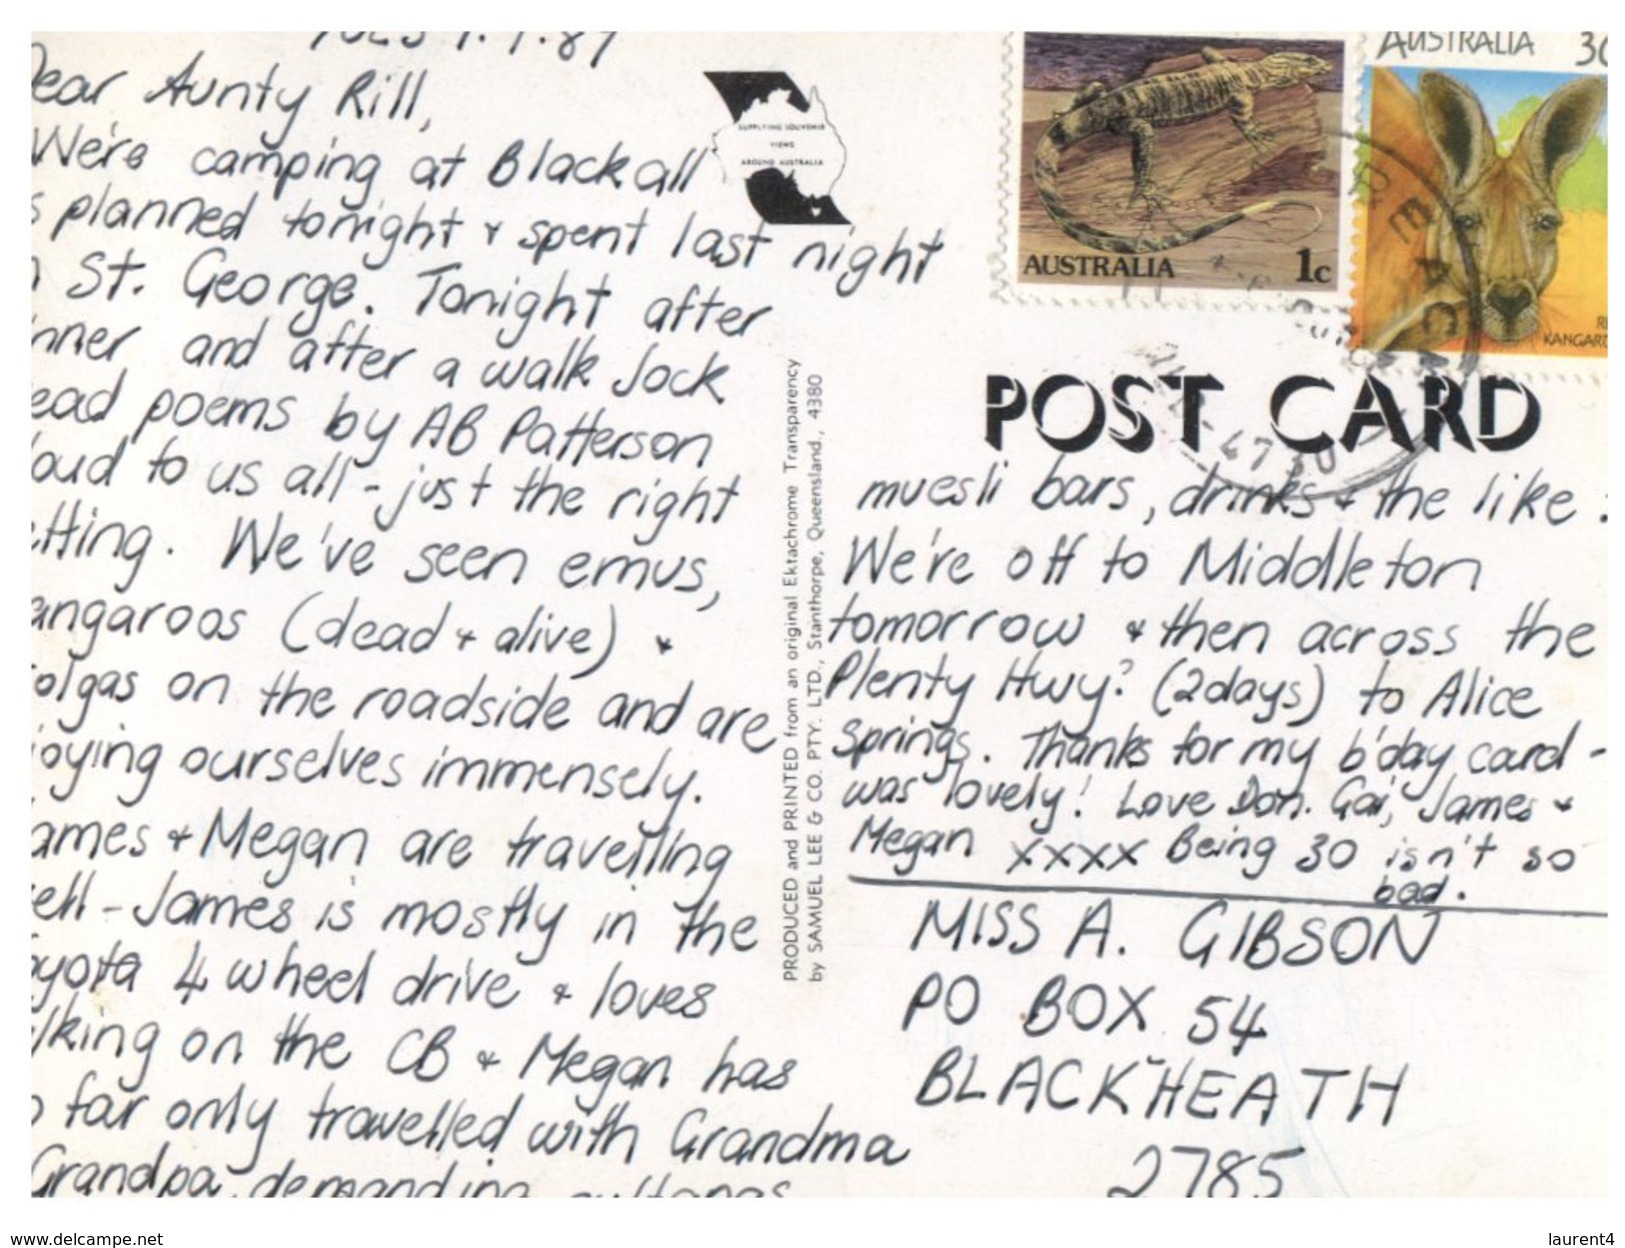 TUES 7.7.87
Dear Aunty Rill,
We're camping at Blackall
s planned tonight + spent last night
St. George. Tonight after
nner and after a walk Jock
ead poems by AB Patterson
loud to us all - just the right
etting. We've seen emus,
angaroos (dead + alive) +
olgas on the roadside and are
joying ourselves immensely.
ames + Megan are travelling
ell - James is mostly in the
oyota 4 wheel drive + loves
lking on the CB + Megan has
o far only travelled with Grandma
Grandpa, demanding sultanas
SUPPLYING SOUVENIR
VIEWS
AROUND AUSTRALIA
PRODUCED and PRINTED from an original Ektachrome Transparency
by SAMUEL LEE & CO. PTY. LTD., Stanthorpe, Queensland., 4380
AUSTRALIA 1c
AUSTRALIA 30
KANGARO
POST CARD
muesli bars, drinks + the like.
We're off to Middleton
tomorrow + then across the
Plenty Hwy? (2days) to Alice
Springs. Thanks for my b'day card -
was lovely! Love Don. Gai, James +
Megan xxxx Being 30 isn't so
bad.
MISS A. GIBSON
PO BOX 54
BLACKHEATH
2785
www.delcampe.net
laurent4